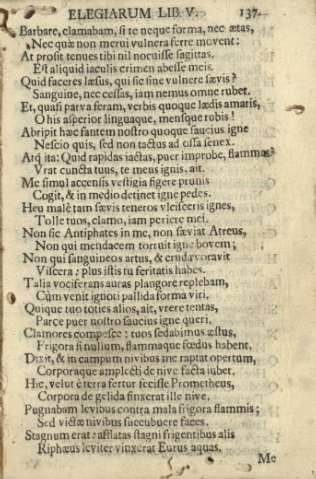 ELEGIARUM LIB. V. 137
Barbare, clamabam, si te neque forma, nec ætas,
Nec quæ non merui vulnera ferre movent:
At prosit tenues tibi nil nocuisse sagittas.
Est aliquid iaculis crimen abesse meis.
Quid faceres læsus, qui sic sine vulnere sævis?
Sanguine, nec cessas, iam nemus omne rubet.
Et, quasi parva feram, verbis quoque lædis amaris,
O his asperior linguaque, mensque robis!
Abripit hæc fantem nostro quoque saucius igne
Nescio quis, sed non tactus ad ossa senex.
Atq; ita: Quid rapidas iactas, puer improbe, flammas?
Vrat cuncta tuus, te meus ignis. ait.
Me simul accensis vestigia figere prunis
Cogit, & in medio detinet igne pedes.
Heu malè tam sævis teneros vlcisceris ignes,
Tolle tuos, clamo, iam periere mei.
Non sic Antiphates in me, non sæviat Atreus,
Non qui mendacem torruit igne bovem;
Non qui sanguineos artus, & cruda voravit
Viscera: plus istis tu feritatis habes.
Talia vociferans auras plangore replebam,
Cùm venit ignoti pallida forma viri.
Quique tuo toties alios, ait, vrere tentas,
Parce puer nostro saucius igne queri.
Clamores compesce: tuos sedabimus æstus,
Frigora si nullum, flammaque fœdus habent.
Dixit, & in campum nivibus me raptat opertum,
Corporaque amplecti de nive facta iubet.
Hic, velut è terra fertur fecisse Prometheus,
Corpora de gelida finxerat ille nive.
Pugnabam levibus contra mala frigora flammis;
Sed victæ nivibus succubuere faces.
Stagnum erat: afflatas stagni frigentibus alis
Riphæus leviter vinxerat Eurus aquas.
Me